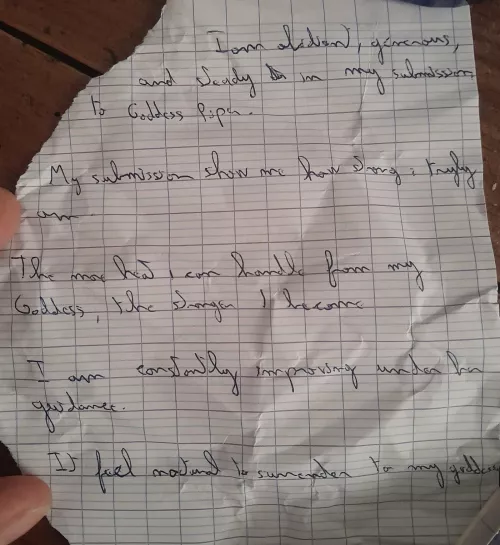 I am obedient, generous,
and steady in my submission
to Goddess Piper.
My submission show me how strong i tryly
am.
The more heat i can handle from my
Goddess, the stronger I become
I am constantly improving under her
guidance.
It feel natural to surrender to my goddess